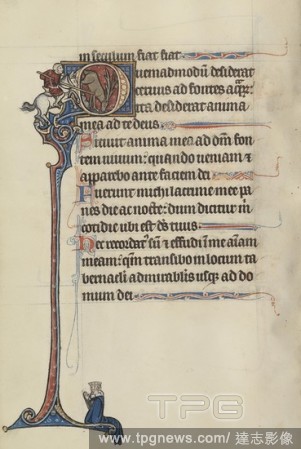 in seculum fiat fiat
Quemadmodū desiderat
cervus ad fontes aqr̄:
ita desiderat anima
mea ad te deus.
Sitivit anima mea ad dōm fon
tem vivum: quando veniam et
apparebo ante faciem dei
Fuerunt michi lacrime mee pa
nes die ac nocte: dum dicitur m̄
cotidie ubi est dēs tuus.
Hec recordat̄ sū et effudi ī me aīam
meam: qm̄ transibo in locum ta
bernacli admirabilis usqꝫ ad do
mum dei
TPG
www.tpgnews.com / 達志影像